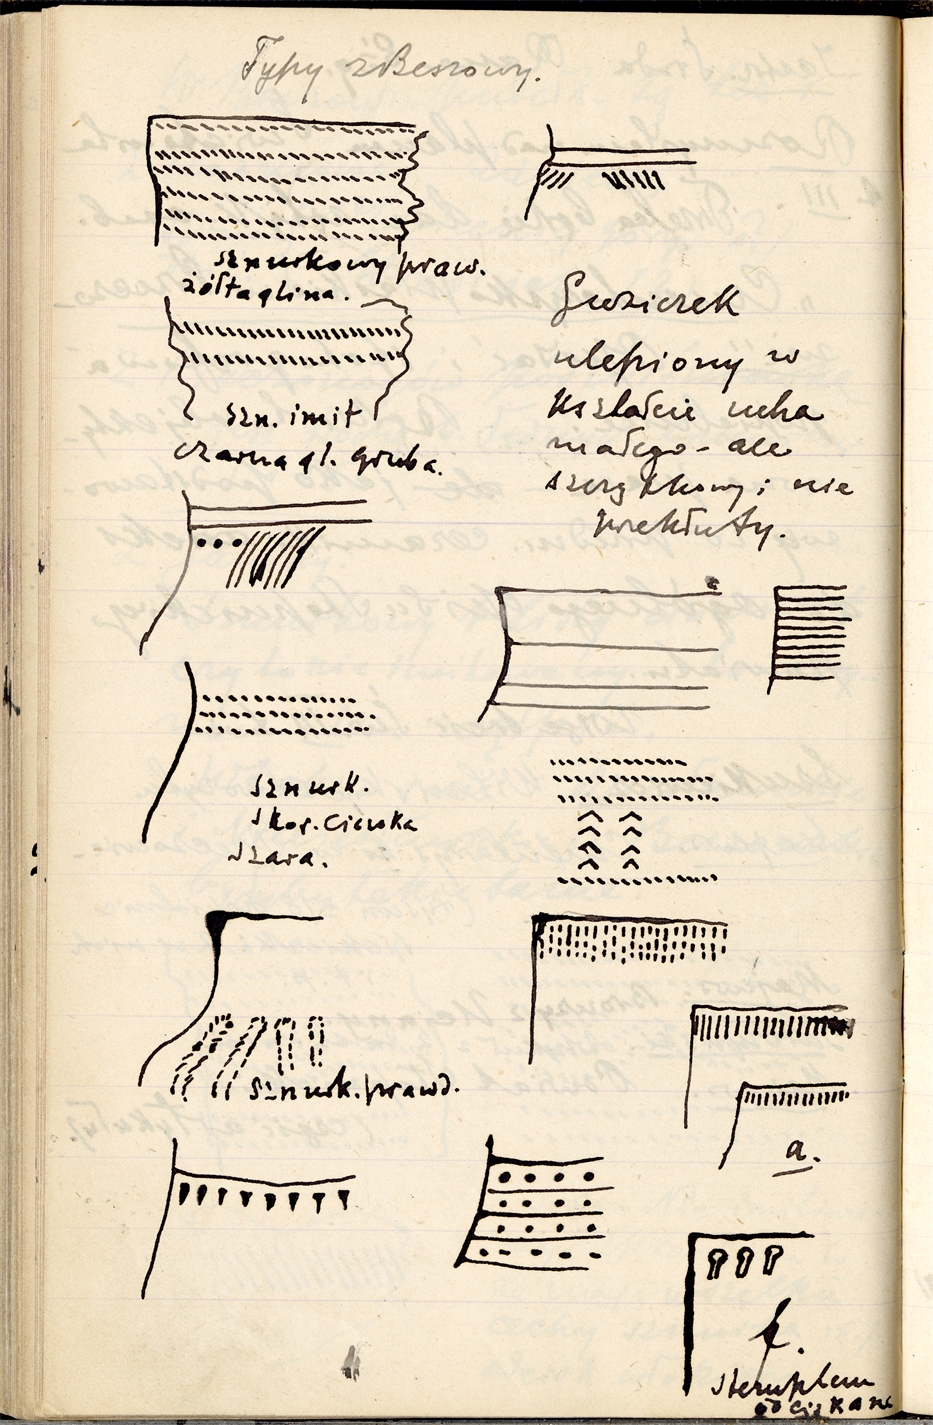 Typy z Beszowy.
sznurkowy praw.
żółta glina.
szn. imit
czarna gl. gruba.
Guziczek
ulepiony w
kształcie ucha
małego - ale
szerokkowy i nie
przekłuty.
sznurk.
skor. cienka
szara.
sznurk. prawd.
a.
stemplem
odciskane